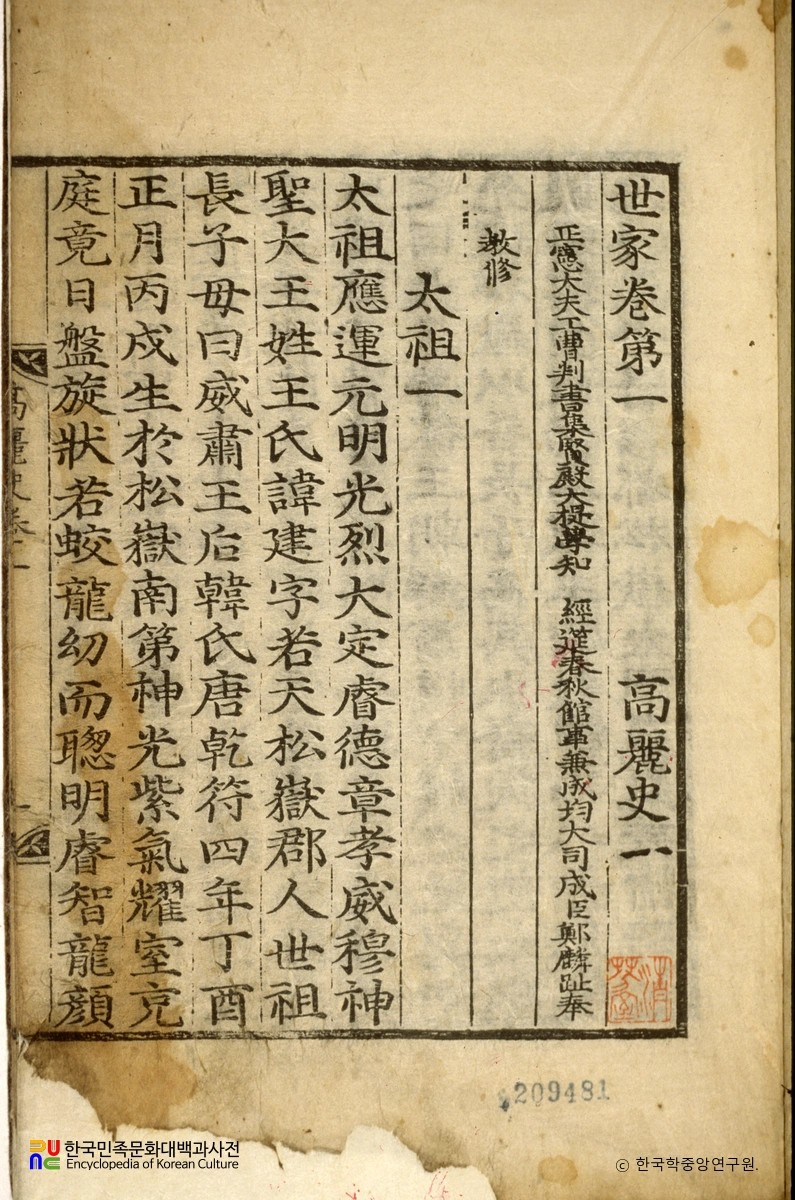 世家卷第一 高麗史一
正憲大夫工曹判書集賢殿大提學知 經筵春秋館事兼成均大司成臣鄭麟趾奉
敎修
太祖一
太祖應運元明光烈大定睿德章孝威穆神
聖大王姓王氏諱建字若天松嶽郡人世祖
長子母曰威肅王后韓氏唐乾符四年丁酉
正月丙戌生於松嶽南第神光紫氣耀室充
庭竟日盤旋狀若蛟龍幼而聰明睿智龍顔
高麗史卷一
209481
한국민족문화대백과사전
Encyclopedia of Korean Culture
© 한국학중앙연구원.